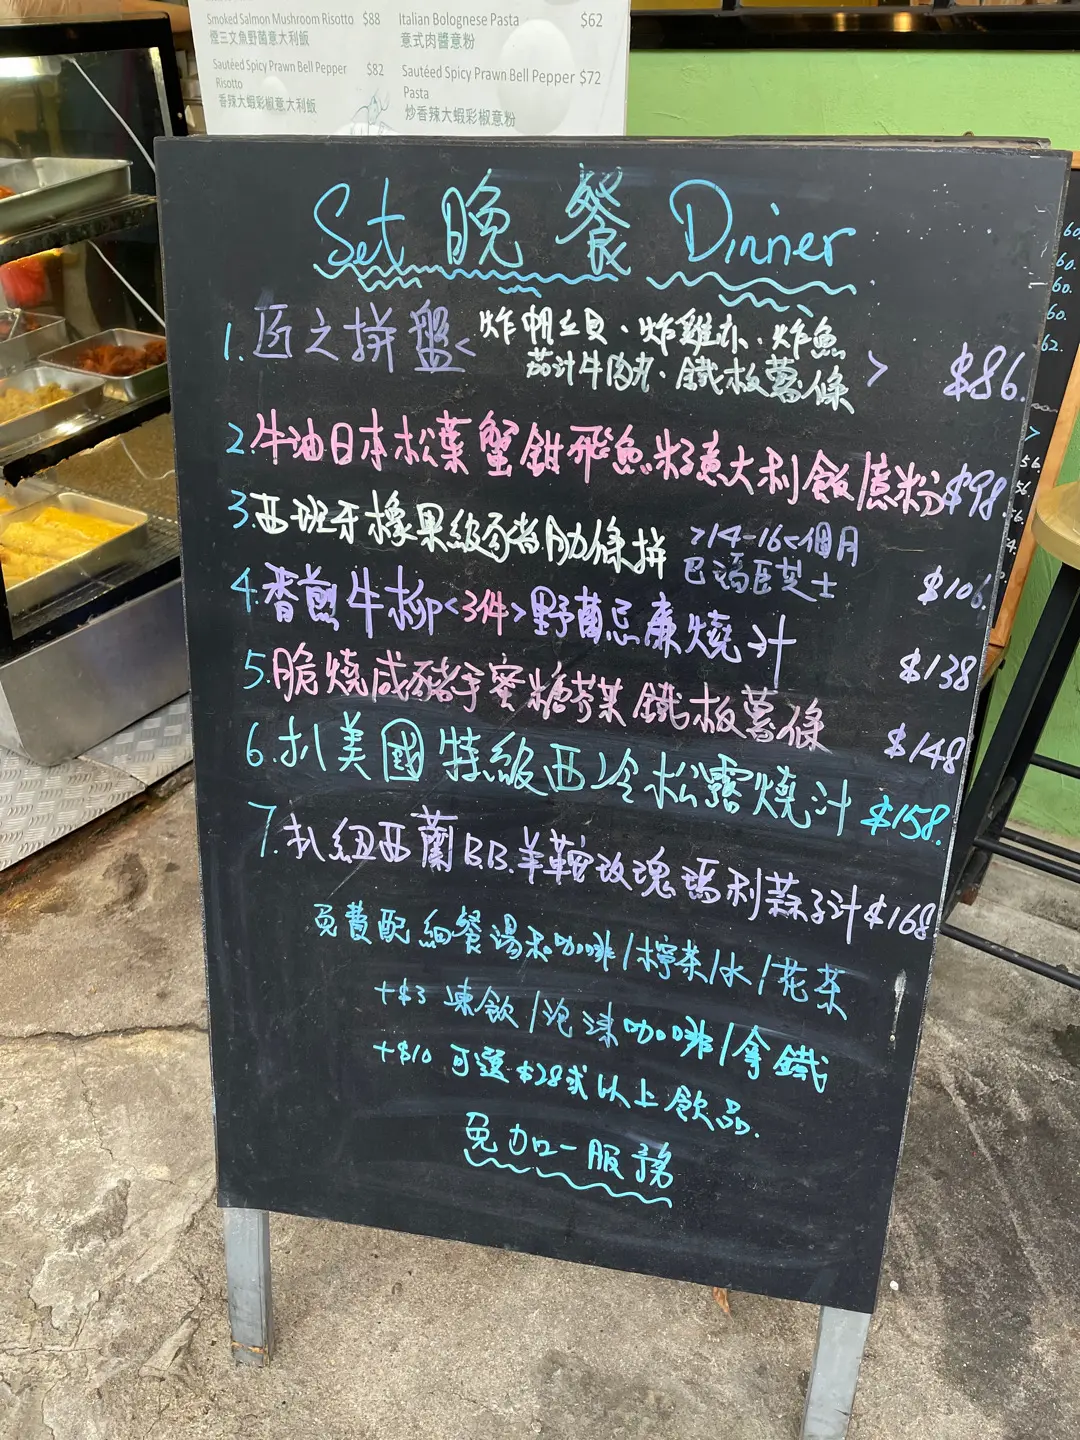 Smoked Salmon Mushroom Risotto $88
煙三文魚野菌意大利飯
Sautéed Spicy Prawn Bell Pepper Risotto $82
香辣大蝦彩椒意大利飯
Italian Bolognese Pasta $62
意式肉醬意粉
Sautéed Spicy Prawn Bell Pepper Pasta $72
炒香辣大蝦彩椒意粉
Set 晚餐 Dinner
1. 匠之拼盤 < 炸帆立貝、炸雞亦、炸魚
茄汁牛肉丸、鐵板薯條 > $86.
2. 牛油日本松葉蟹鉗飛魚籽意大利飯/意粉 $98.
3 西班牙橡果級豬肋條拼 >14-16<個月
巴馬臣芝士 $106.
4. 香煎牛柳<3件>野菌忌廉燒汁 $138
5. 脆燒咸豬手蜜糖芥菜鐵板薯條 $148
6. 扒美國特級西冷松露燒汁 $158.
7. 扒紐西蘭BB.羊鞍玫瑰瑪利蒜子汁 $168.
免費配細餐湯和咖啡/檸茶/水/花茶
+$3 凍飲/泡沫咖啡/拿鐵
+$10 可選$28或以上飲品.
免加一服務